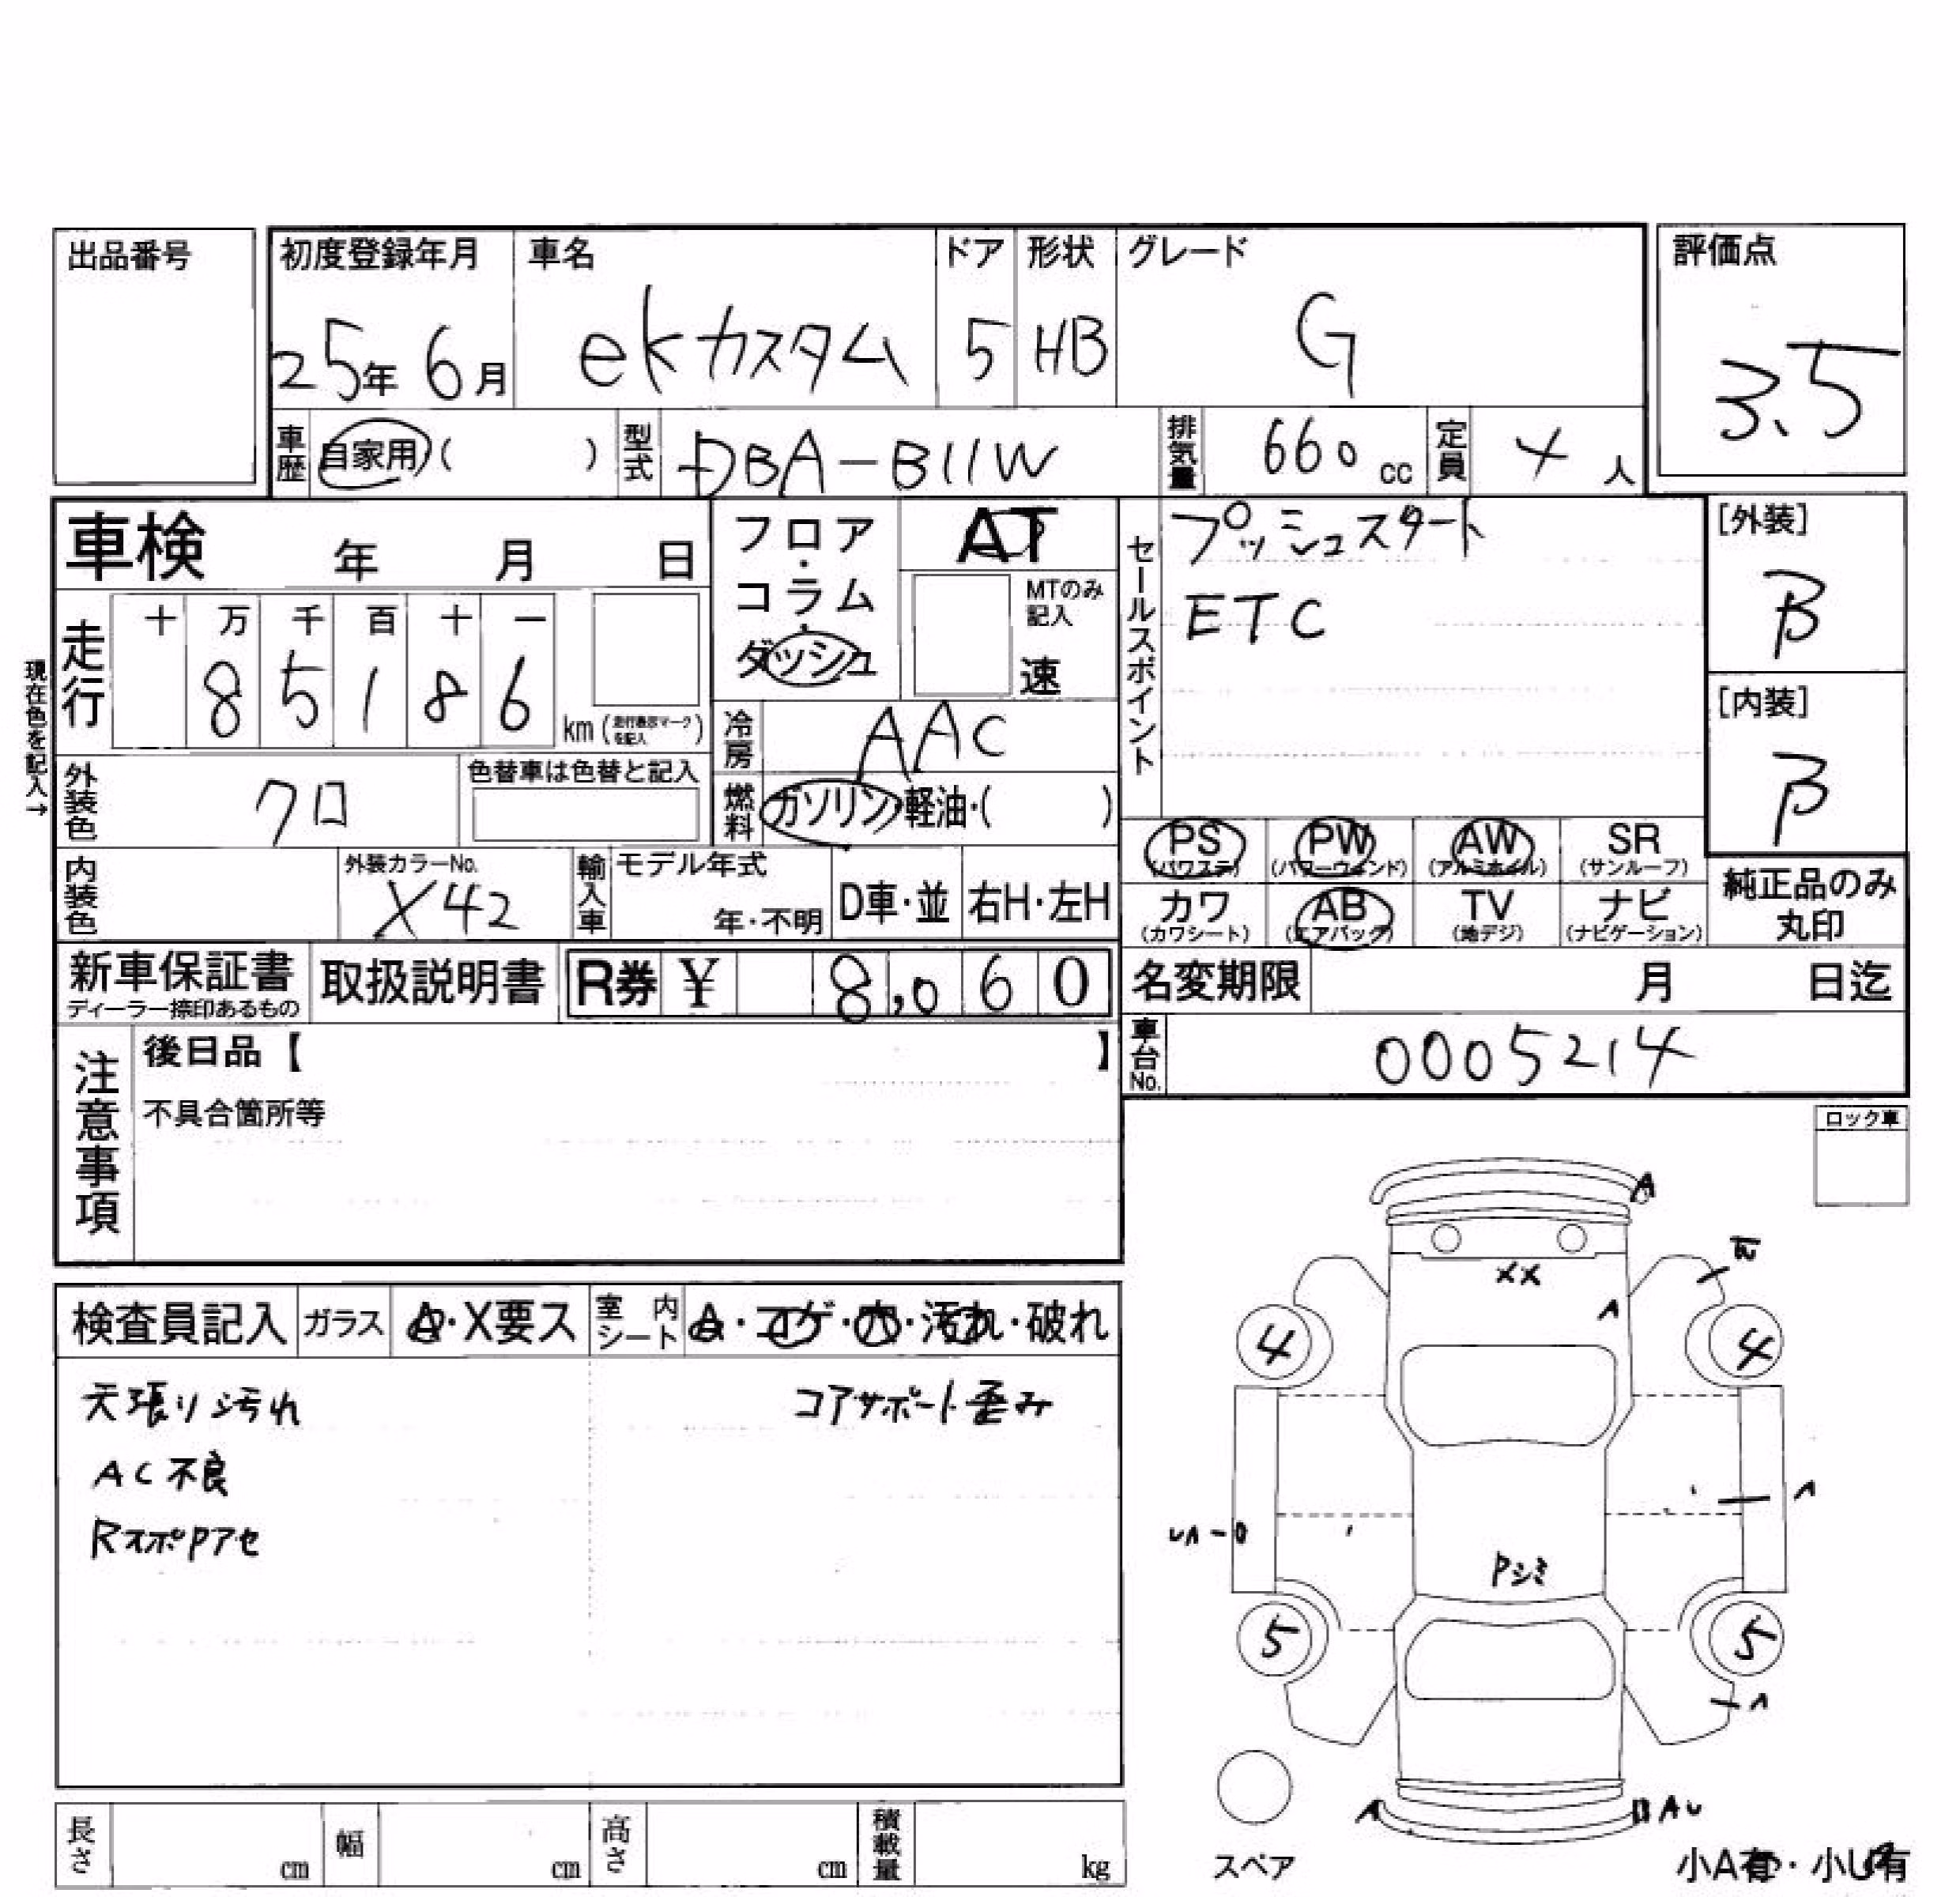 出品番号
初度登録年月 車名 ドア 形状 グレード 評価点
25年 6月 ekカスタム 5 HB G 3.5
車歴 自家用( ) 型式 DBA-B11W 排気量 660 cc 定員 4 人
車検 年 月 日
フロア・コラム・ダッシュ
AT
MTのみ記入
速
セールスポイント
プッシュスタート
ETC
[外装]
B
[内装]
B
現在色を記入→
走行 十 万 千 百 十 一
8 5 1 8 6 km (走行表示マークを記入)
冷房 AAC
外装色 クロ 色替車は色替と記入
燃料 ガソリン・軽油・( )
PS (パワステ) PW (パワーウィンド) AW (アルミホイル) SR (サンルーフ)
カワ (カワシート) AB (エアバック) TV (地デジ) ナビ (ナビゲーション)
純正品のみ丸印
内装色 外装カラーNo. X42 輸入車 モデル年式 年・不明 D車・並 右H・左H
新車保証書 ディーラー捺印あるもの 取扱説明書 R券 ¥ 8,060
名変期限 月 日迄
車台No. 0005214
注意事項
後日品【 】
不具合箇所等
ロック車
検査員記入 ガラス A・X要ス 室内シート A・コゲ・穴・汚れ・破れ
天張り汚れ コアサポート歪み
AC不良
RスポPアセ
A
XX
A
4 4
A
Pシミ
5 5
A
A
AU
スペア
小A有・小U有
長さ cm 幅 cm 高さ cm 積載量 kg